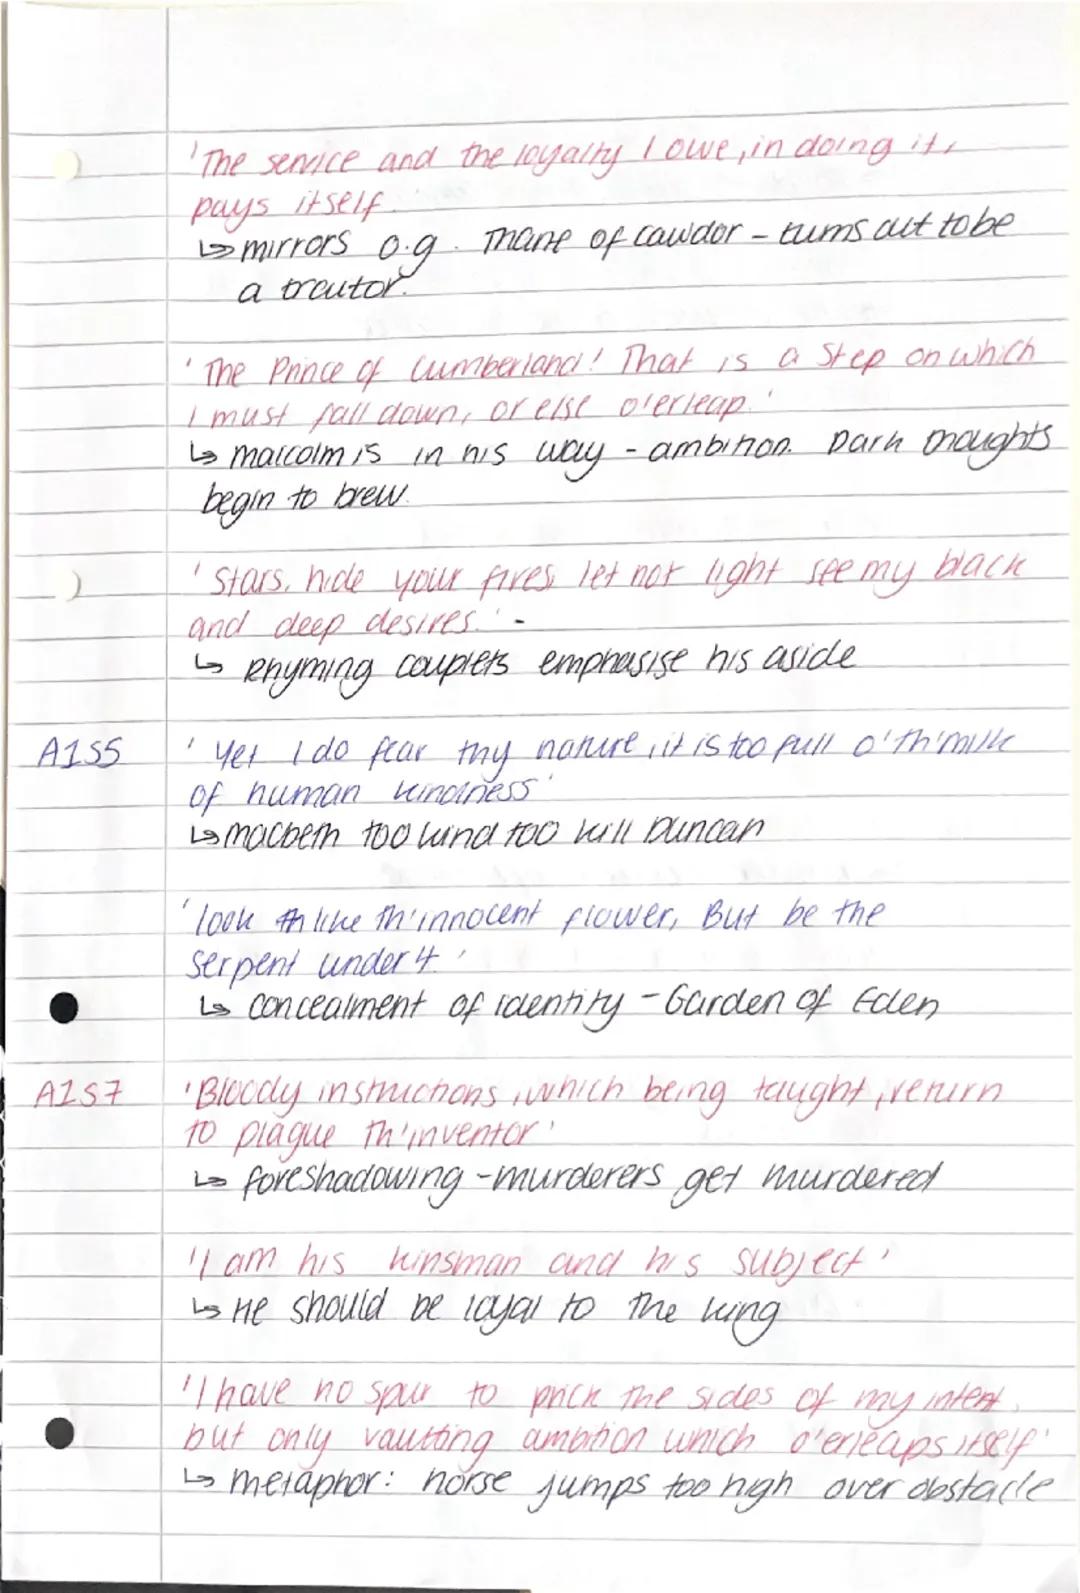 'The service and the loyalty I owe, in doing it,
pays itself.
↳ mirrors o.g. Thane of Cawdor - turns out to be
a traitor.
'The Prince of Cumberland! That is a step on which
I must fall down, or else o'erleap.'
↳ Malcolm is in his way - ambition. Dark thoughts
begin to brew.
'Stars, hide your fires, let not light see my black
and deep desires.' -
↳ Rhyming couplets emphasise his aside
A1S5 'Yet I do fear thy nature, it is too full o'th'milk
of human kindness'
↳ Macbeth too kind too kill Duncan
'look th like th'innocent flower, But be the
Serpent under't.'
↳ concealment of identity - Garden of Eden
A1S7 'Bloody instructions, which being taught, return
to plague th'inventor'
↳ foreshadowing - murderers get murdered
'I am his kinsman and his subject'
↳ He should be loyal to the king
'I have no spur to prick the sides of my intent,
but only vaulting ambition which o'erleaps itself'
↳ metaphor: horse jumps too high over obstacle